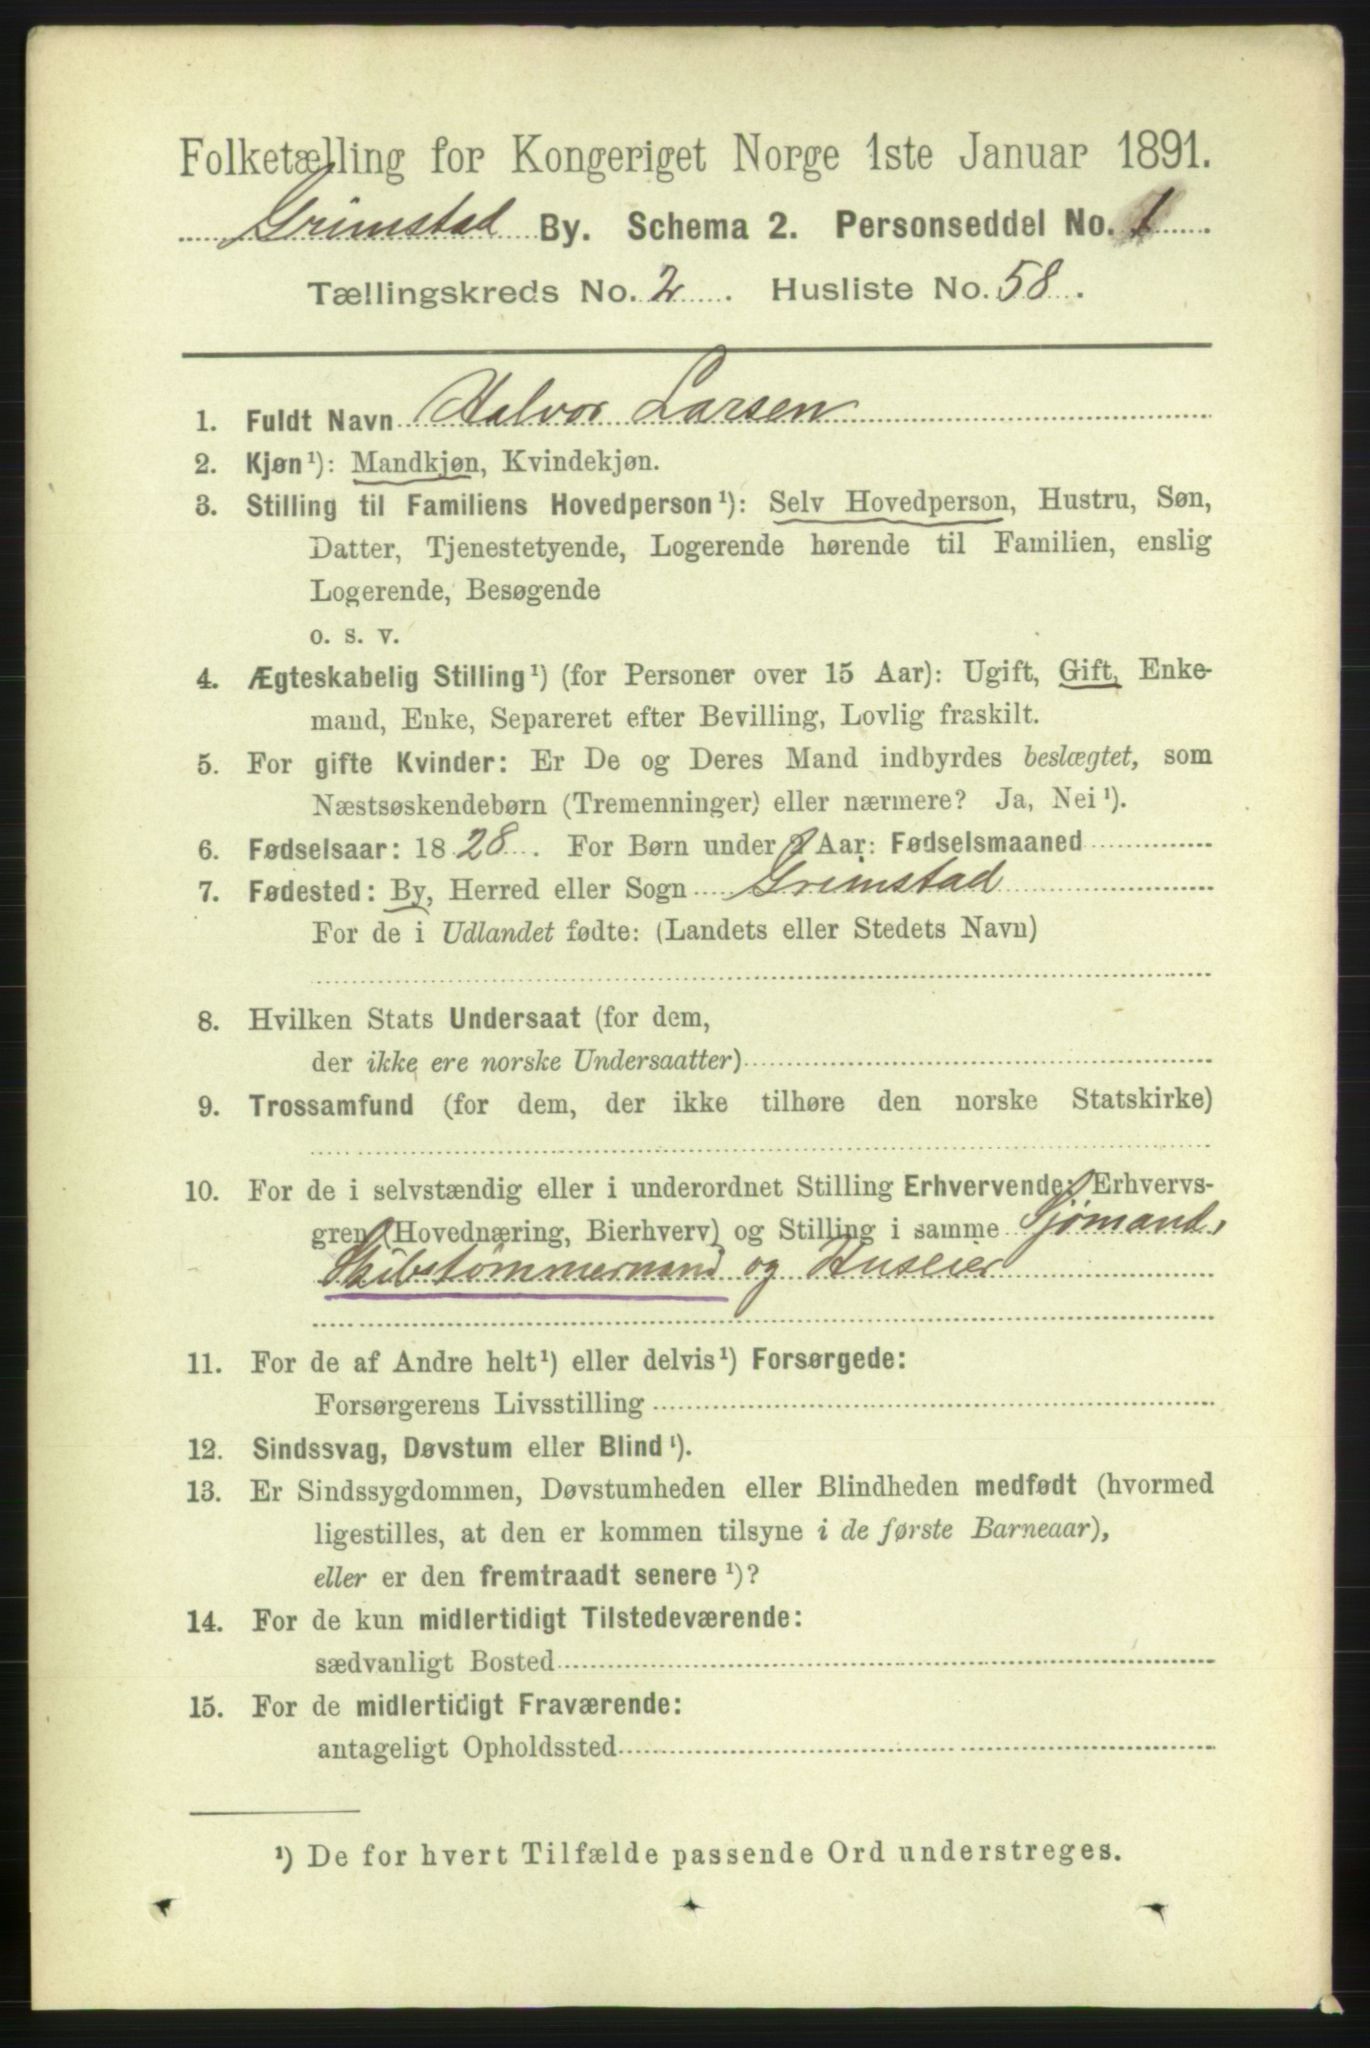 Folketælling for Kongeriget Norge 1ste Januar 1891.
Grimstad By. Schema 2. Personseddel No. 1
Tællingskreds No. 2. Husliste No. 58.
1. Fuldt Navn Halvor Larsen
2. Kjøn¹): Mandkjøn, Kvindekjøn.
3. Stilling til Familiens Hovedperson¹): Selv Hovedperson, Hustru, Søn,
Datter, Tjenestetyende, Logerende hørende til Familien, enslig
Logerende, Besøgende
o. s. v.
4. Ægteskabelig Stilling¹) (for Personer over 15 Aar): Ugift, Gift, Enke-
mand, Enke, Separeret efter Bevilling, Lovlig fraskilt.
5. For gifte Kvinder: Er De og Deres Mand indbyrdes beslægtet, som
Næstsøskendebørn (Tremenninger) eller nærmere? Ja, Nei¹).
6. Fødselsaar: 1828. For Børn under 2 Aar: Fødselsmaaned
7. Fødested: By, Herred eller Sogn Grimstad
For de i Udlandet fødte: (Landets eller Stedets Navn)
8. Hvilken Stats Undersaat (for dem,
der ikke ere norske Undersaatter)
9. Trossamfund (for dem, der ikke tilhøre den norske Statskirke)
10. For de i selvstændig eller i underordnet Stilling Erhvervende: Erhvervs-
gren (Hovednæring, Bierhverv) og Stilling i samme Sjømand,
Skibstømmermand og Huseier
11. For de af Andre helt¹) eller delvis¹) Forsørgede:
Forsørgerens Livsstilling
12. Sindssvag, Døvstum eller Blind¹).
13. Er Sindssygdommen, Døvstumheden eller Blindheden medfødt (hvormed
ligestilles, at den er kommen tilsyne i de første Barneaar),
eller er den fremtraadt senere¹)?
14. For de kun midlertidigt Tilstedeværende:
sædvanligt Bosted
15. For de midlertidigt Fraværende:
antageligt Opholdssted
¹) De for hvert Tilfælde passende Ord understreges.